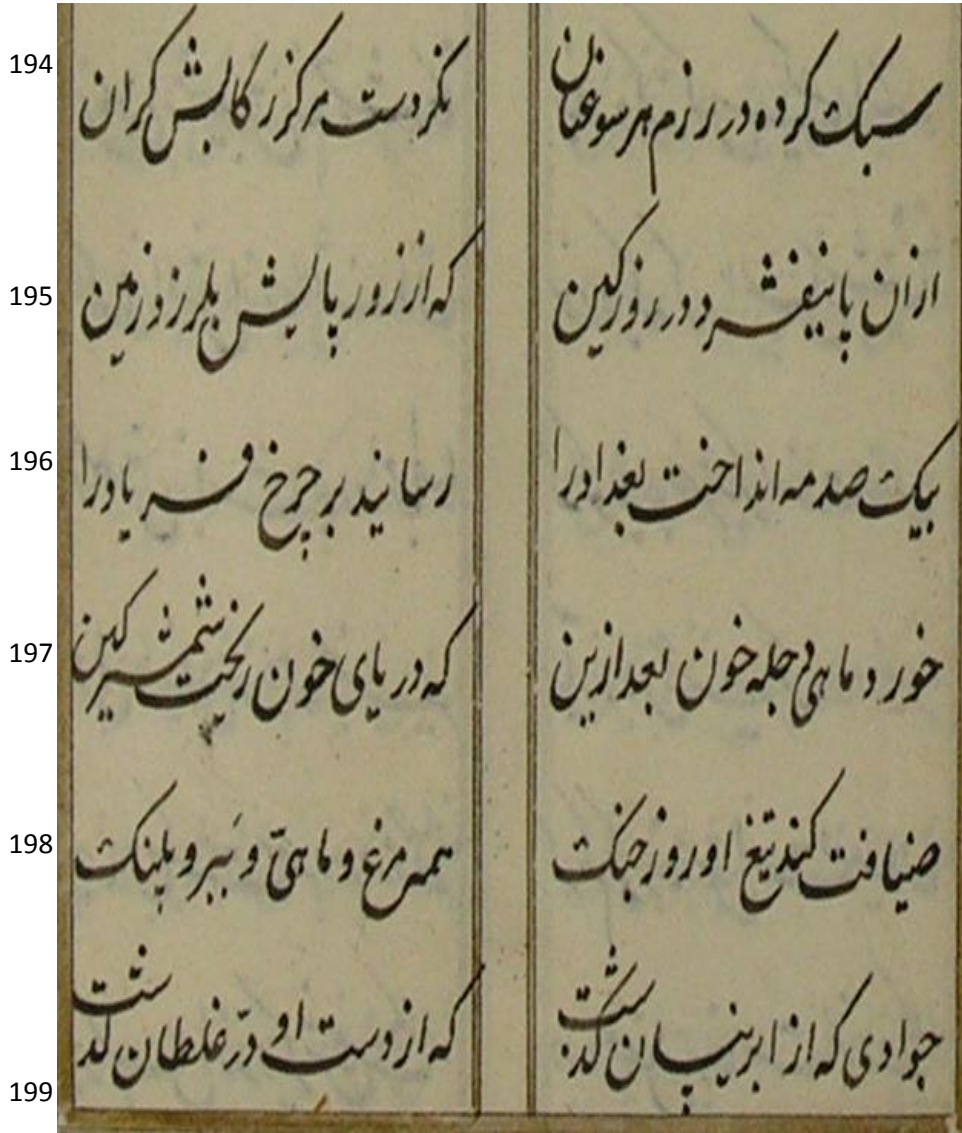 سبک کرده در رزم هر سو عنان نکردست هرکز رکابش کران 194
ازان پا نیفشرد در روز کین که از زور پایش بلرزد زمین 195
بیک صدمه انداخت بغداد را رسانید بر چرخ فریاد را 196
خورد ماهی دجله خون بعد ازین که دریای خون ریخت شمشیر کین 197
ضیافت کند تیغ او روز جنک همه مرغ و ماهیّ و ببر و پلنک 198
جوادی که از ابر نیسان کذشت که از دست او درّ غلطان کذشت 199